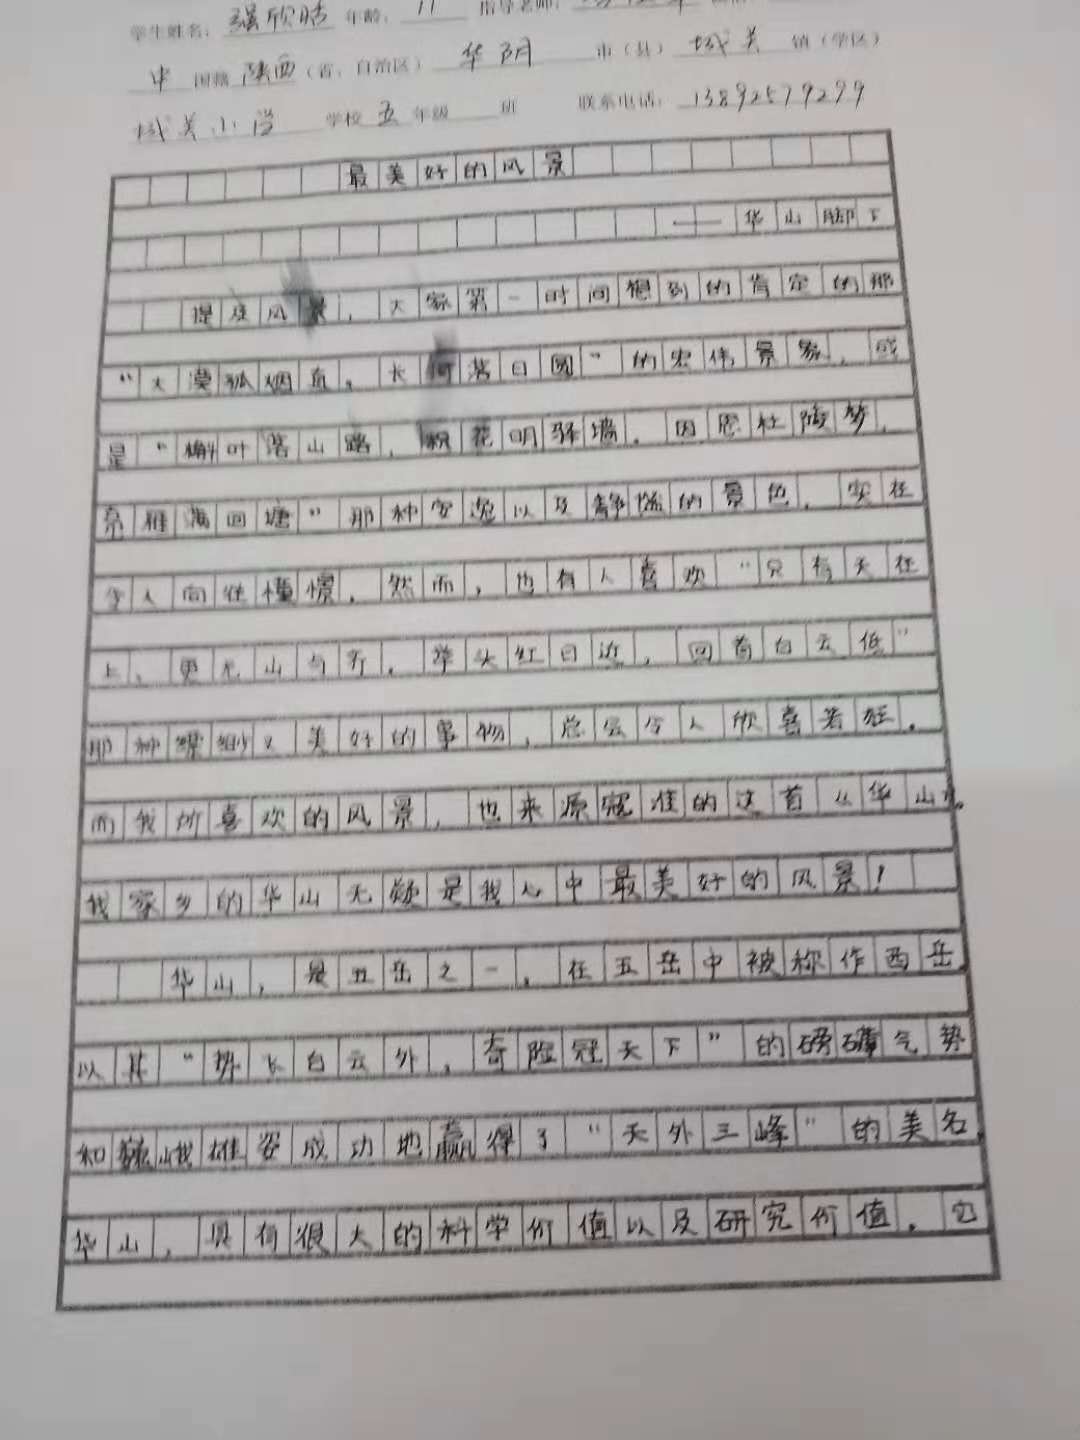 学生姓名：强欣 年龄：11 指导老师：
中 国籍 陕西（省、自治区）华阴 市（县）城关 镇（学区）
城关小学 学校 五 年级 班 联系电话：13892579299
最美好的风景
——华山脚下
提及风景，大家第一时间想到的肯定的那
“大漠孤烟直，长河落日圆”的宏伟景象，或
是“槲叶落山路，枳花明驿墙。因思杜陵梦，
凫雁满回塘”那种安逸以及静谧的景色，实在
令人向往憧憬，然而，也有人喜欢“只有天在
上，更无山与齐，举头红日近，回首白云低”
那种缥缈又美好的事物，总会令人欣喜若狂。
而我所喜欢的风景，也来源寇准的这首《华山》。
我家乡的华山无疑是我心中最美好的风景！
华山，是五岳之一，在五岳中被称作西岳，
以其“势飞白云外，奇险冠天下”的磅礴气势
和巍峨雄姿成功地赢得了“天外三峰”的美名，
华山，具有很大的科学价值以及研究价值。它